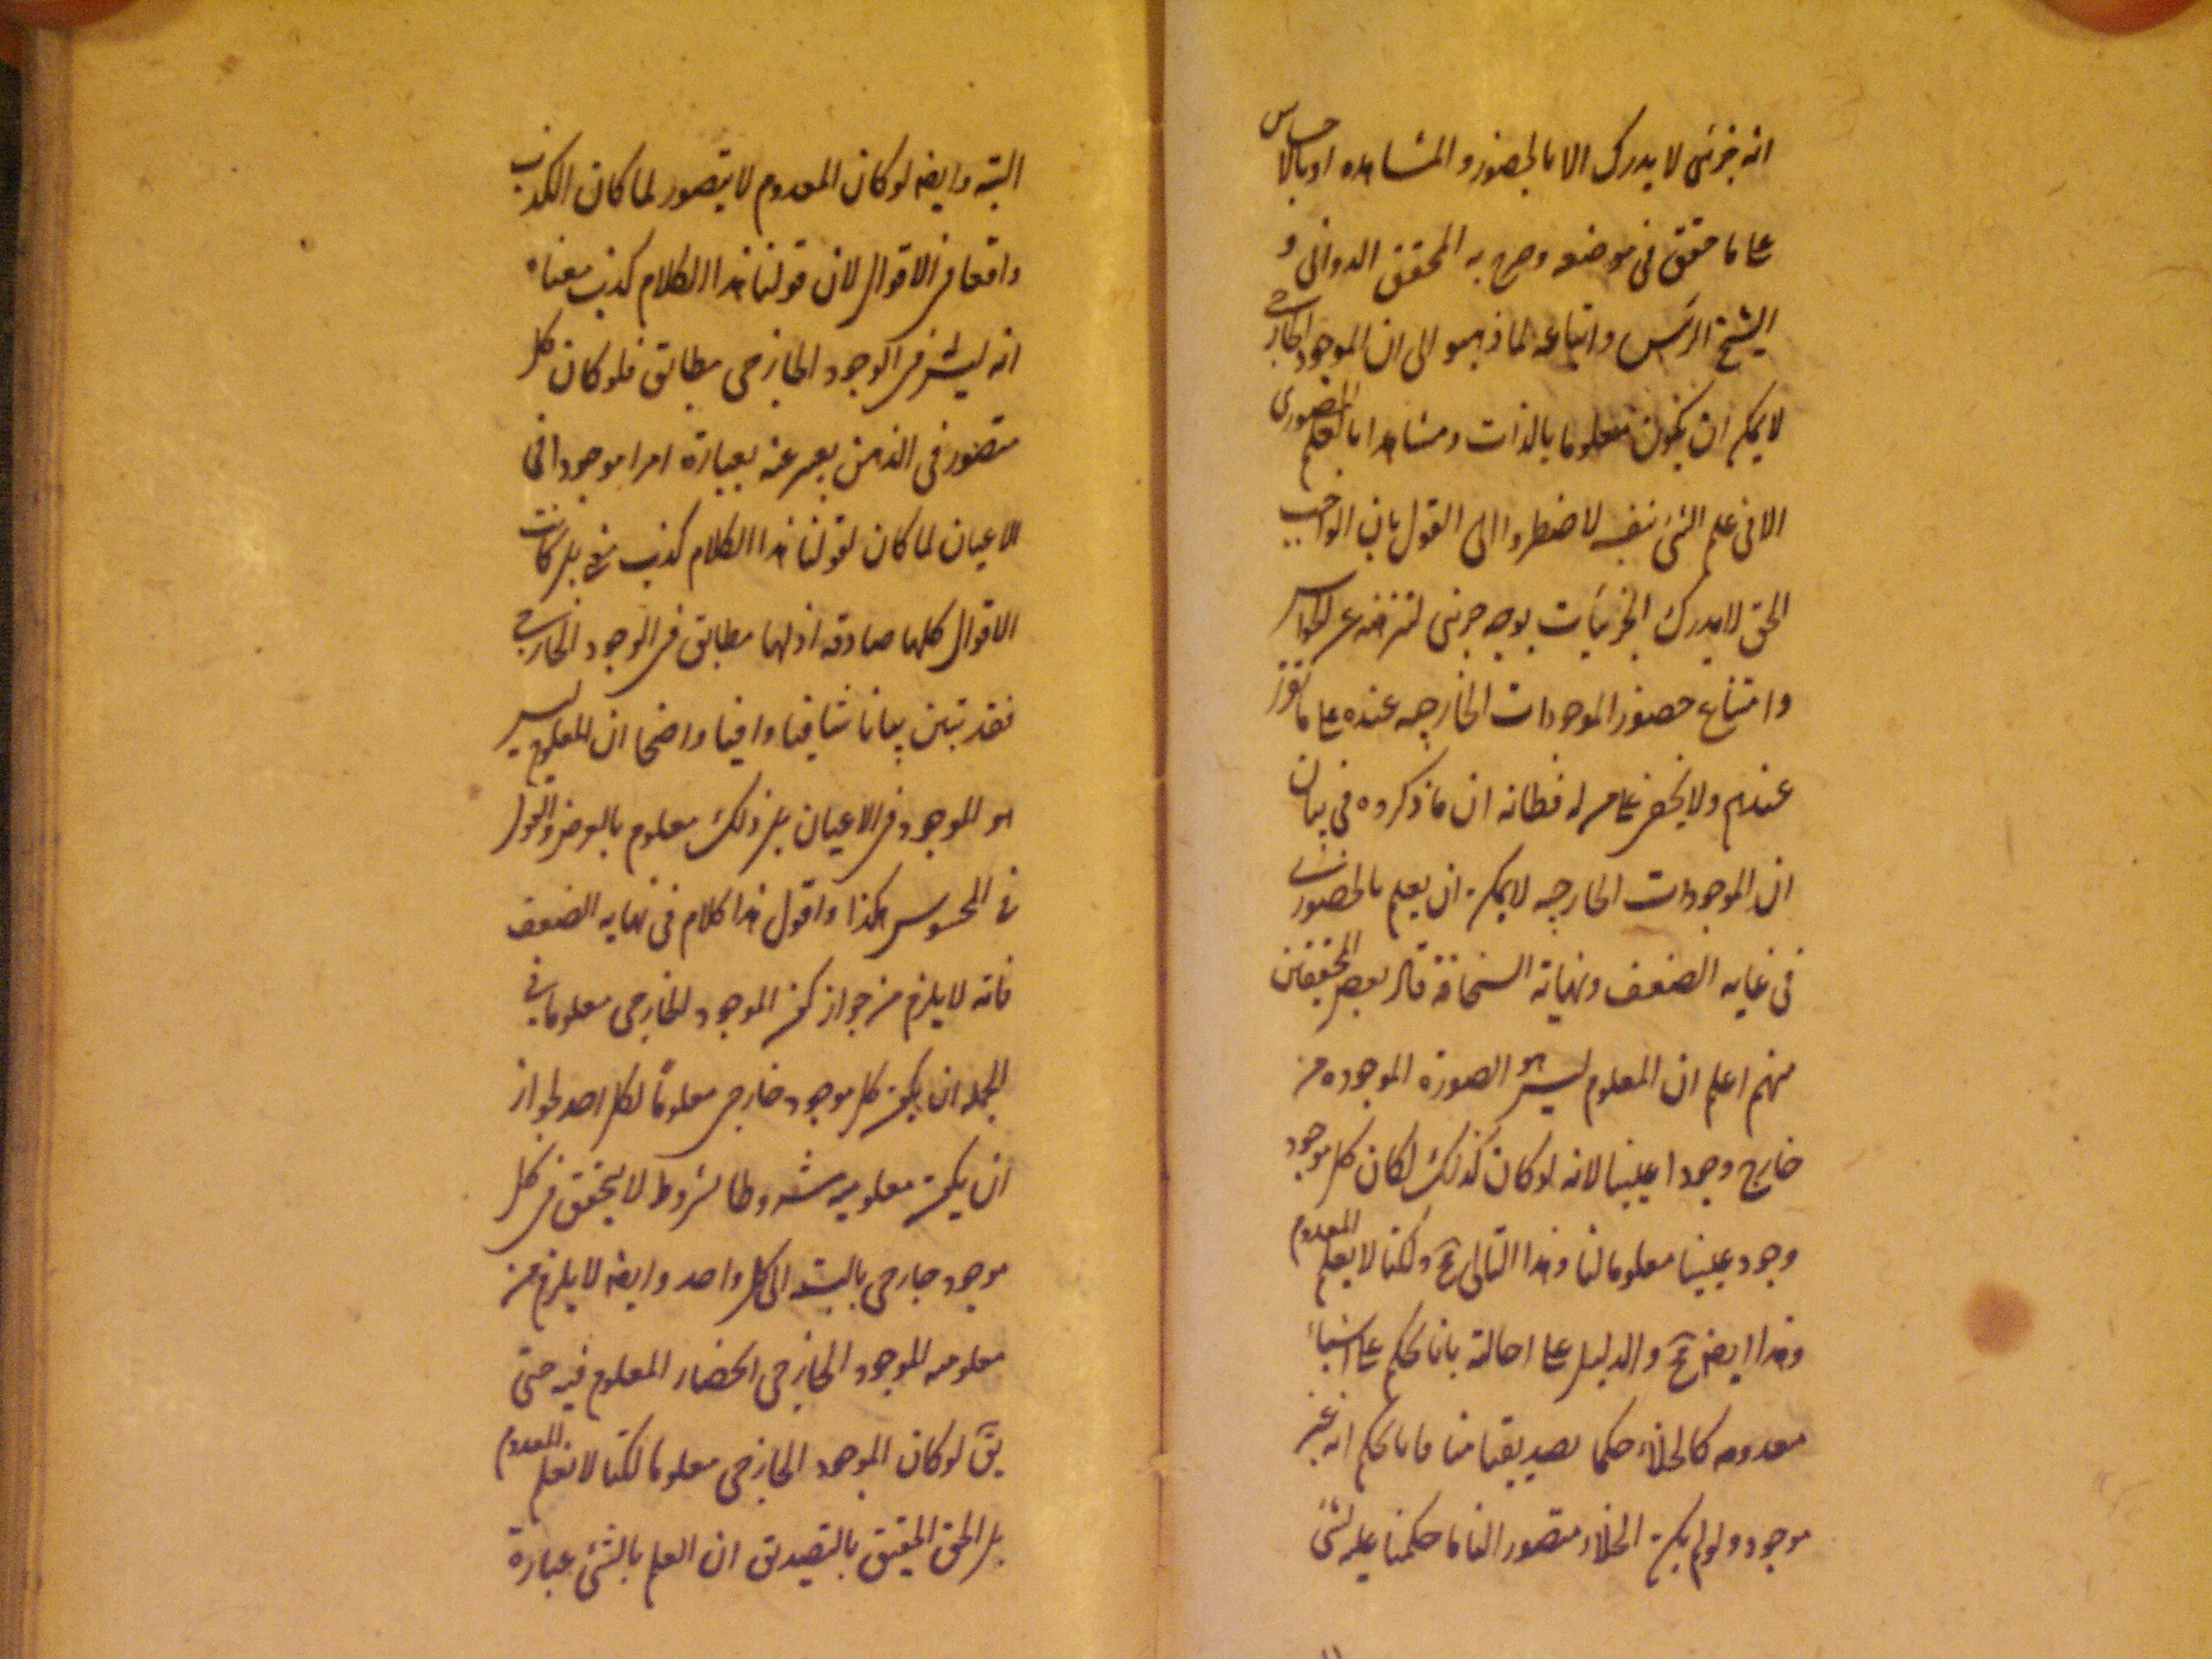 انه جزئی لا يدرك الا بالحضور والمشاهده او بالاحساس
علی ما حقق فی موضعه وصرح به المحقق الدوانی و
الشيخ الرئيس واتباعه لما ذهبوا الی ان الموجود الخارجی
لا يمكن ان يكون معلوما بالذات ومشاهدا بالعلم الحضوری
الا فی علم الشئ بنفسه لاضطروا الی القول بان الواجب
الحق لا يدرك الجزئيات بوجه جزئی لتنزهه عن الحواس
وامتناع حضور الموجودات الخارجيه عنده علی ما تقرر
عندهم ولا يخفی علی من له فطانه ان ما ذكروه فی بيان
ان الموجودات الخارجيه لا يمكن ان يعلم بالحضوری
فی غايه الضعف ونهاية السخافة قال بعض المحققين
منهم اعلم ان المعلوم ليس هو الصورة الموجوده من
خارج وجودا عينيا لانه لو كان كذلك لكان كل موجود
وجود عينيا معلوما لنا وهذا التالی مح ولكنا لا يعلم المعدوم
وهذا ايضا مح والدليل علی احالته بانا نحكم علی اشياء
معدومه كالخلاء حكما تصديقيا منا فانا نحكم انه غير
موجود ولو لم يكن الخلاء متصورا لنا ما حكمنا عليه بشئ
البته وايضا لو كان المعدوم لا يتصور لما كان الكذب
واقعا فی الاقوال لان قولنا هذا الكلام كذب معناه
انه ليس له فی الوجود الخارجی مطابق فلو كان كل
متصور فی الذهن يعبر عنه بعبارة امرا موجودا فی
الاعيان لما كان لقولنا هذا الكلام كذب معنی بل كانت
الاقوال كلها صادقه اذ لها مطابق فی الوجود الخارجی
فقد تبين بيانا شافيا وافيا واضحا ان المعلوم ليس
هو الموجود فی الاعيان بل ذلك معلوم بالعرض والقول
فی المحسوس هكذا واقول هذا كلام فی نهايه الضعف
فانه لا يلزم من جواز كون الموجود الخارجی معلوما فی
الجمله ان يكون كل موجود خارجی معلوماً لكل احد لجواز
ان يكون معلوميته مشروطا بشروط لا يتحقق فی كل
موجود خارجی بالنسبه الی كل واحد وايضا لا يلزم من
معلوميه الموجود الخارجی انحصار المعلوم فيه حتی
يق لو كان الموجود الخارجی معلوما لكنا لا نعلم المعدوم
بل الحق الحقيق بالتصديق ان العلم بالشئ عبارة